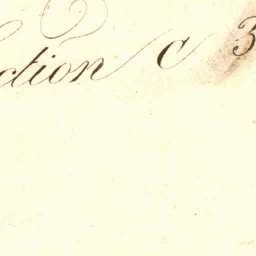 ction C 3